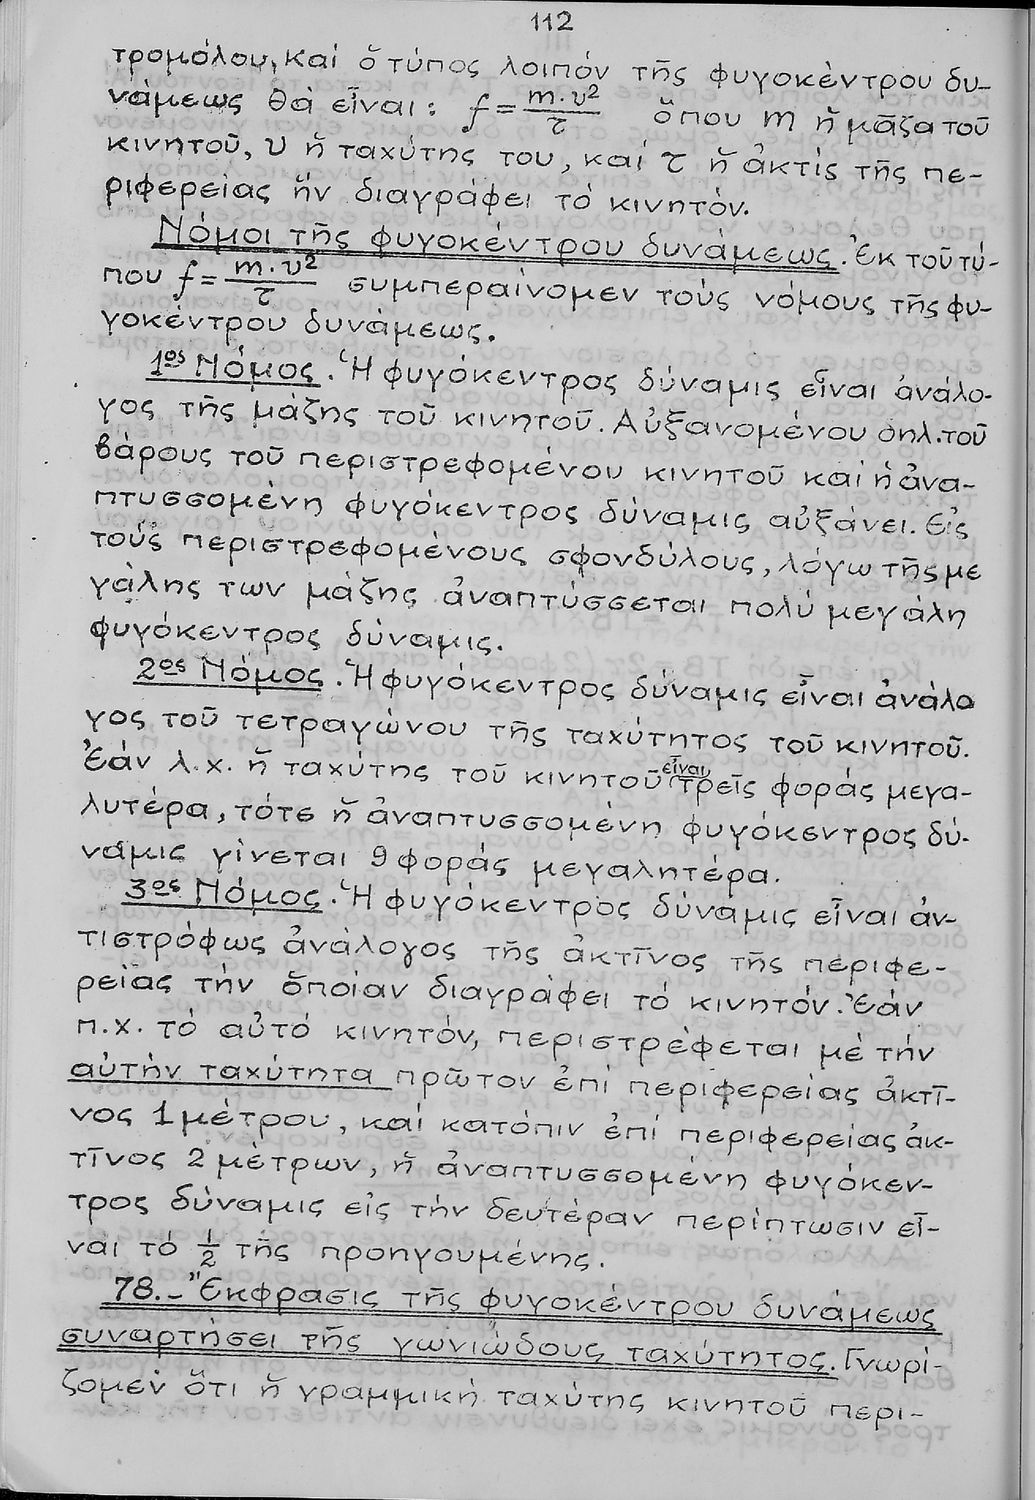 112
τρομόλου, καί ὁ τύπος λοιπόν τῆς φυγοκέντρου δυ-
νάμεως θά εἶναι: f = m·υ²/τ ὅπου m ἡ μᾶζα τοῦ
κινητοῦ, υ ἡ ταχύτης του, καί τ ἡ ἀκτίς τῆς πε-
ριφερείας ἥν διαγράφει τό κινητόν.
Νόμοι τῆς φυγοκέντρου δυνάμεως. Ἐκ τοῦ τύ-
που f = m·υ²/τ συμπεραίνομεν τούς νόμους τῆς φυ-
γοκέντρου δυνάμεως.
1ος Νόμος. Ἡ φυγόκεντρος δύναμις εἶναι ἀνάλο-
γος τῆς μάζης τοῦ κινητοῦ. Αὐξανομένου δηλ. τοῦ
βάρους τοῦ περιστρεφομένου κινητοῦ καί ἡ ἀνα-
πτυσσομένη φυγόκεντρος δύναμις αὐξάνει. Εἰς
τούς περιστρεφομένους σφονδύλους, λόγω τῆς με
γάλης των μάζης ἀναπτύσσεται πολύ μεγάλη
φυγόκεντρος δύναμις.
2ος Νόμος. Ἡ φυγόκεντρος δύναμις εἶναι ἀνάλο
γος τοῦ τετραγώνου τῆς ταχύτητος τοῦ κινητοῦ.
Ἐάν λ.χ. ἡ ταχύτης τοῦ κινητοῦ εἶναι τρεῖς φοράς μεγα-
λυτέρα, τότε ἡ ἀναπτυσσομένη φυγόκεντρος δύ-
ναμις γίνεται 9 φοράς μεγαλητέρα.
3ος Νόμος. Ἡ φυγόκεντρος δύναμις εἶναι ἀν-
τιστρόφως ἀνάλογος τῆς ἀκτῖνος τῆς περιφε-
ρείας τήν ὁποίαν διαγράφει τό κινητόν. Ἐάν
π.χ. τό αὐτό κινητόν, περιστρέφεται μέ τήν
αὐτήν ταχύτητα πρῶτον ἐπί περιφερείας ἀκτῖ-
νος 1 μέτρου, καί κατόπιν ἐπί περιφερείας ἀκ-
τῖνος 2 μέτρων, ἡ ἀναπτυσσομένη φυγόκεν-
τρος δύναμις εἰς τήν δευτέραν περίπτωσιν εἶ-
ναι τό 1/2 τῆς προηγουμένης.
78.- Ἔκφρασις τῆς φυγοκέντρου δυνάμεως
συναρτήσει τῆς γωνιώδους ταχύτητος. Γνωρί-
ζομεν ὅτι ἡ γραμμική ταχύτης κινητοῦ περι-